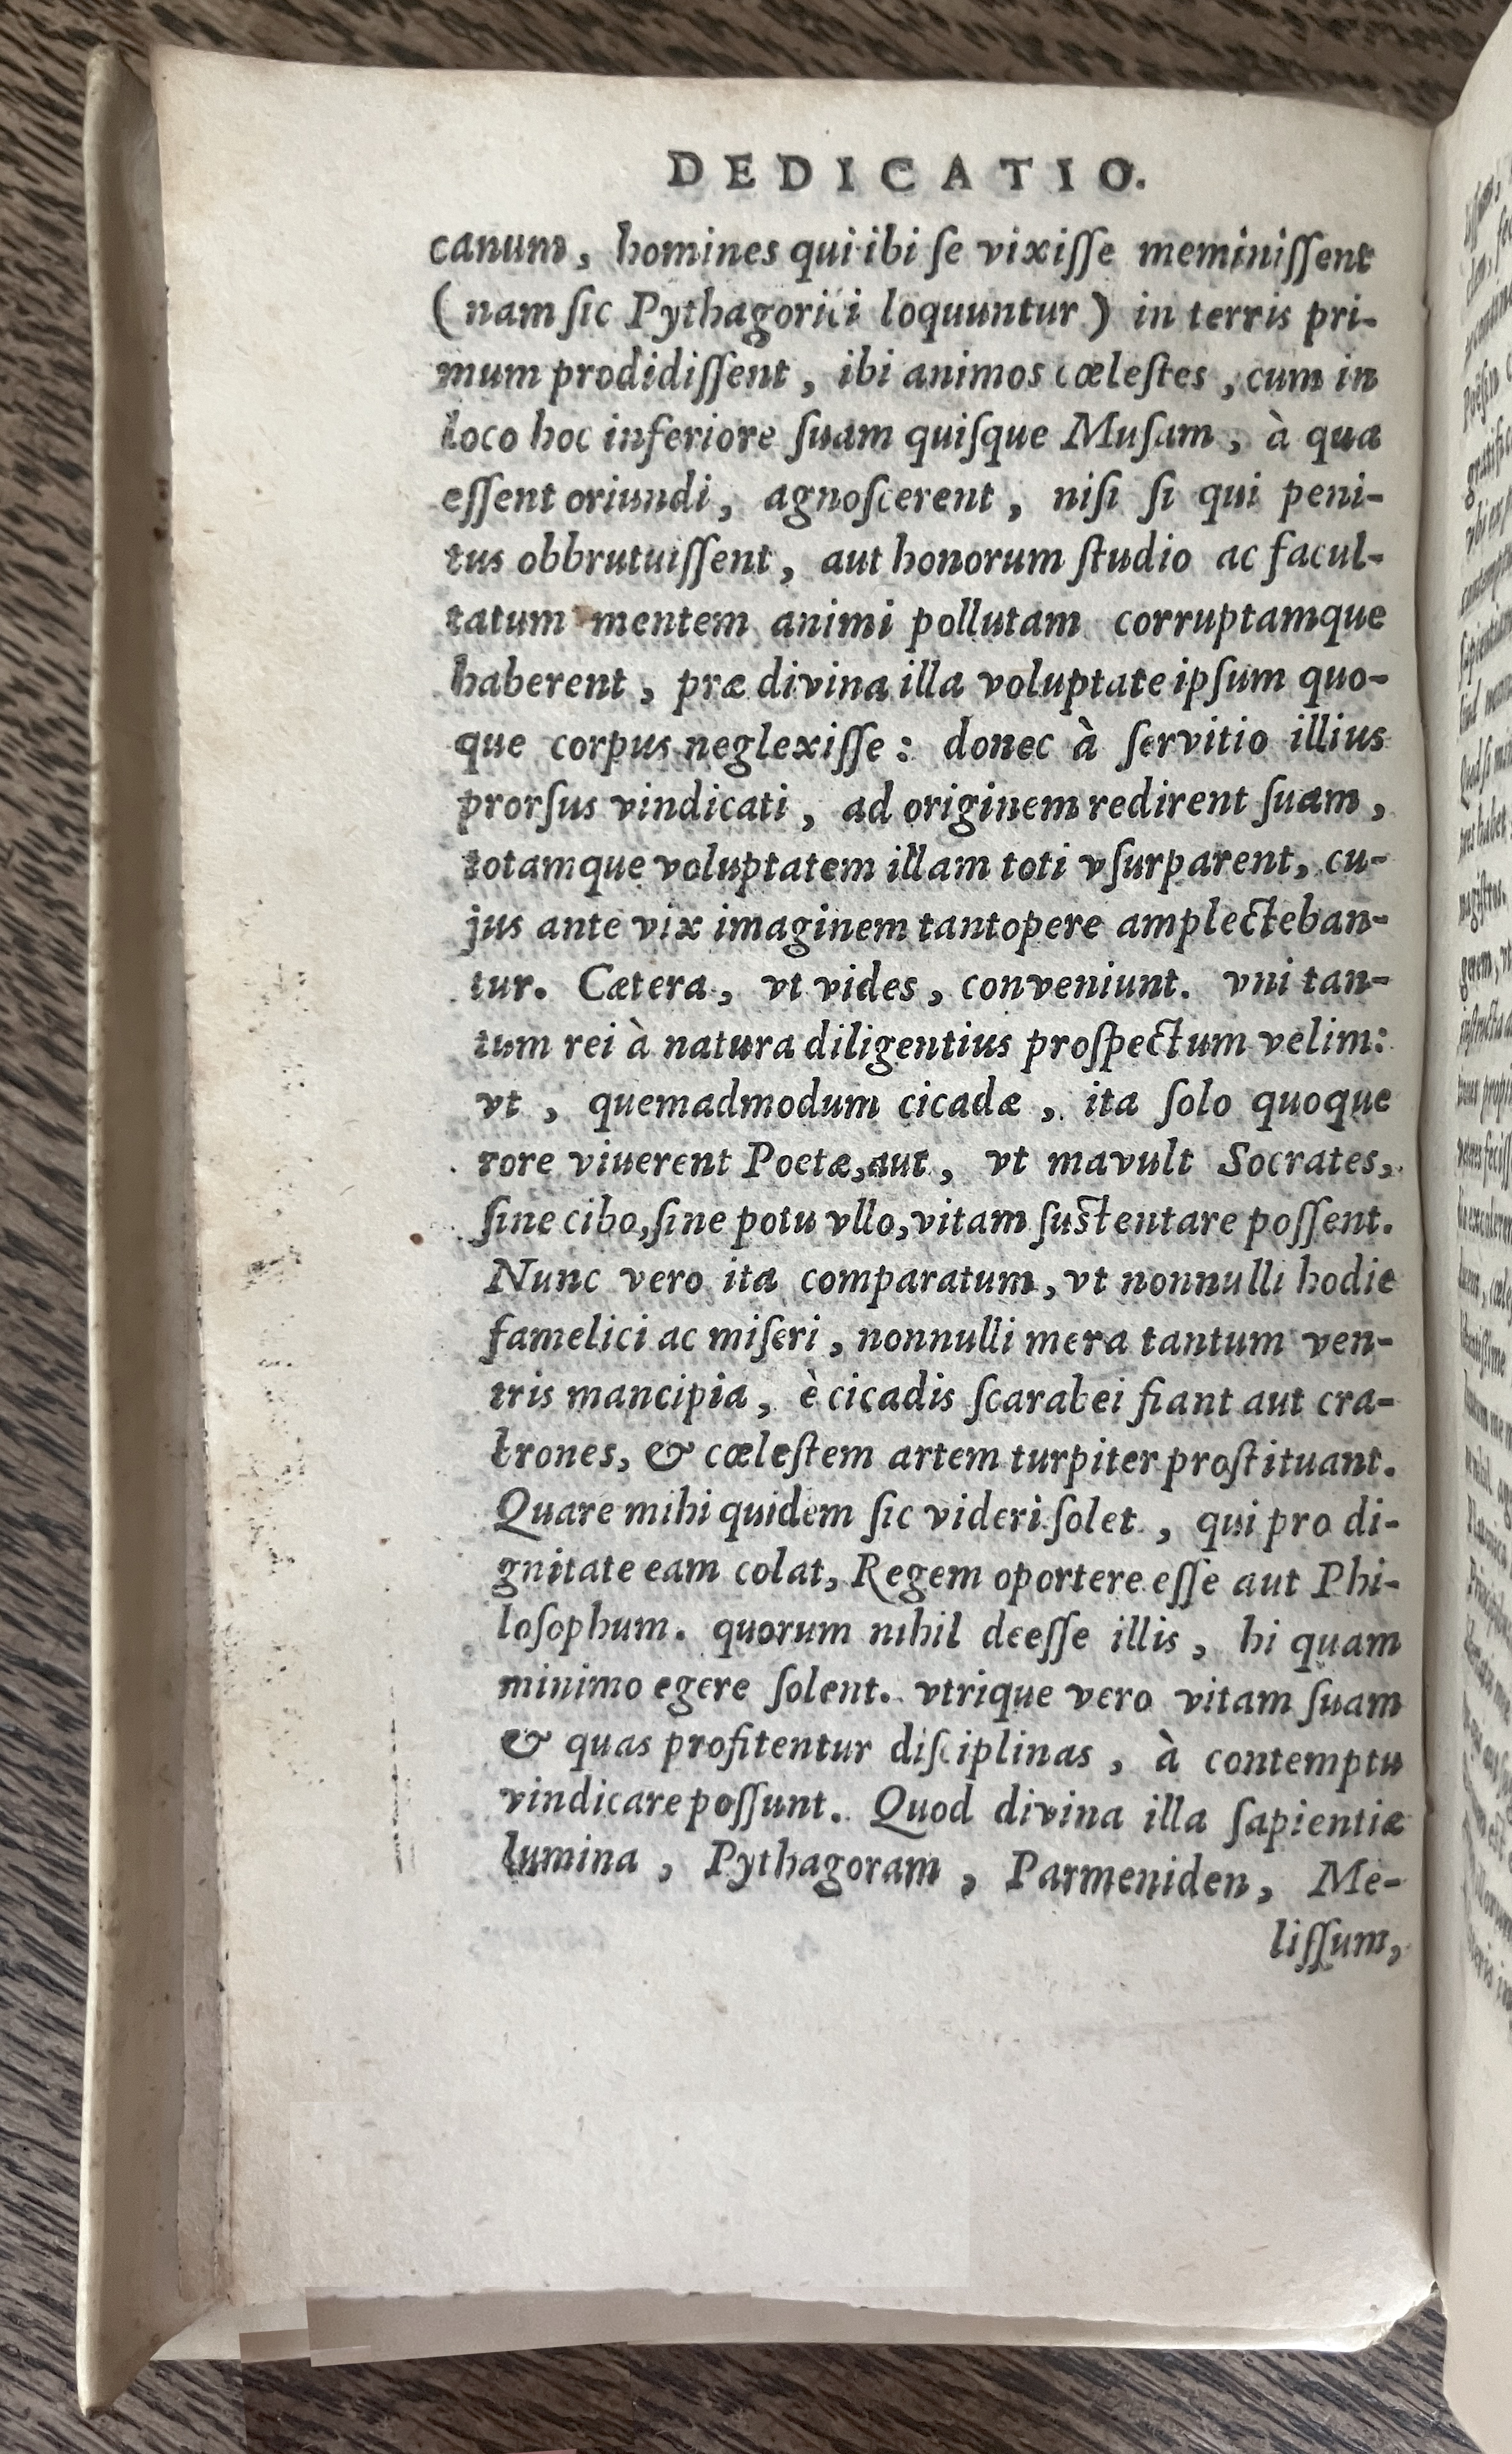 DEDICATIO.
canum, homines qui ibi ſe vixiſſe meminiſſent
(nam ſic Pythagorici loquuntur) in terris pri-
mum prodidiſſent, ibi animos cœleſtes, cum in
loco hoc inferiore ſuam quiſque Muſam, à qua
eſſent oriundi, agnoſcerent, niſi ſi qui peni-
tus obbrutuiſſent, aut honorum ſtudio ac facul-
tatum mentem animi pollutam corruptamque
haberent, præ divina illa voluptate ipſum quo-
que corpus neglexiſſe: donec à ſervitio illius
prorſus vindicati, ad originem redirent ſuam,
totamque voluptatem illam toti vſurparent, cu-
jus ante vix imaginem tantopere amplecteban-
tur. Cætera, vt vides, conveniunt. vni tan-
tum rei à natura diligentius proſpectum velim:
vt, quemadmodum cicadæ, ita ſolo quoque
rore viuerent Poetæ, aut, vt mavult Socrates,
ſine cibo, ſine potu vllo, vitam ſustentare poſſent.
Nunc vero ita comparatum, vt nonnulli hodie
famelici ac miſeri, nonnulli mera tantum ven-
tris mancipia, è cicadis ſcarabei fiant aut cra-
brones, & cœleſtem artem turpiter proſtituant.
Quare mihi quidem ſic videri ſolet, qui pro di-
gnitate eam colat, Regem oportere eſſe aut Phi-
loſophum. quorum nihil deeſſe illis, hi quam
minimo egere ſolent. vtrique vero vitam ſuam
& quas profitentur diſciplinas, à contemptu
vindicare poſſunt. Quod divina illa ſapientiæ
lumina, Pythagoram, Parmeniden, Me-
liſſum,